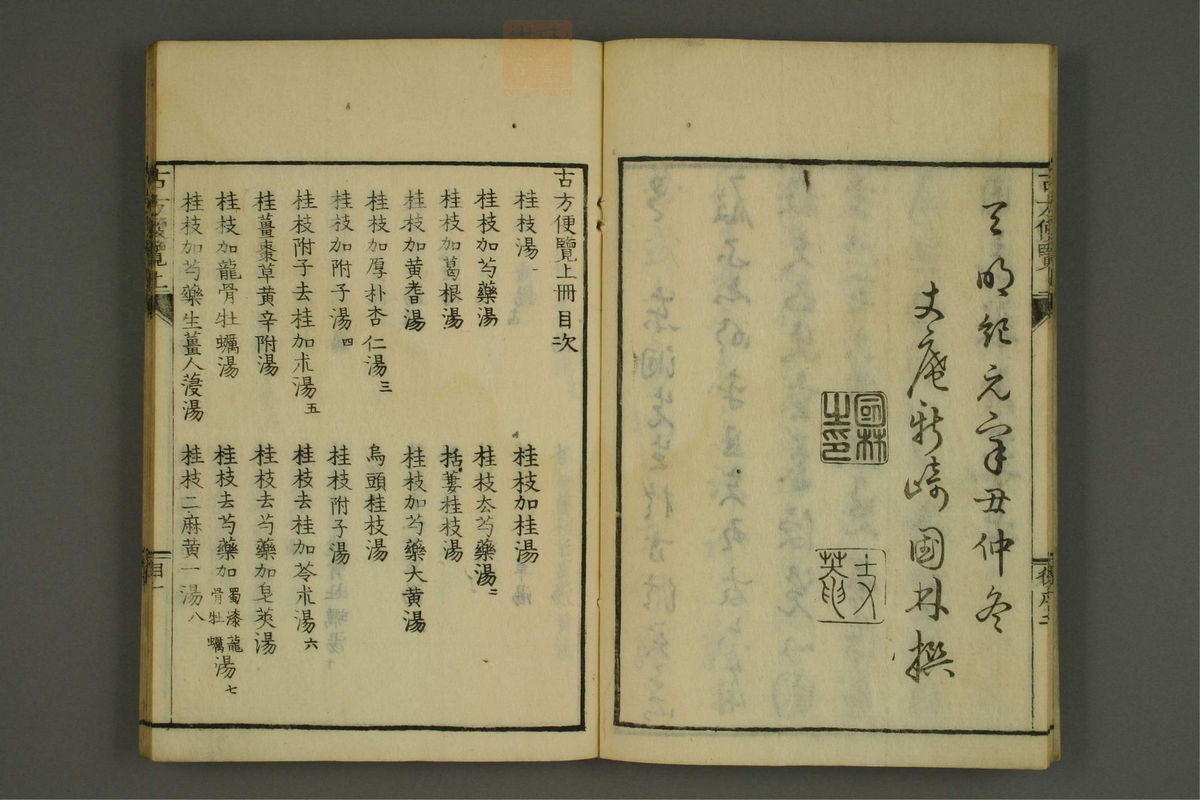 天明紀元辛丑仲冬
丈庵新崎國林撰
國林之印
丈菴
古方便覽上
後序二
古方便覽上冊目次
桂枝湯一 桂枝加桂湯
桂枝加芍藥湯 桂枝去芍藥湯二
桂枝加葛根湯 括蔞桂枝湯
桂枝加黃耆湯 桂枝加芍藥大黃湯
桂枝加厚朴杏仁湯三 烏頭桂枝湯
桂枝加附子湯四 桂枝附子湯
桂枝附子去桂加朮湯五 桂枝去桂加苓朮湯六
桂薑棗草黃辛附湯 桂枝去芍藥加皂莢湯
桂枝加龍骨牡蠣湯 桂枝去芍藥加蜀漆龍骨牡蠣湯七
桂枝加芍藥生薑人薓湯 桂枝二麻黃一湯八
古方便覽上
目一